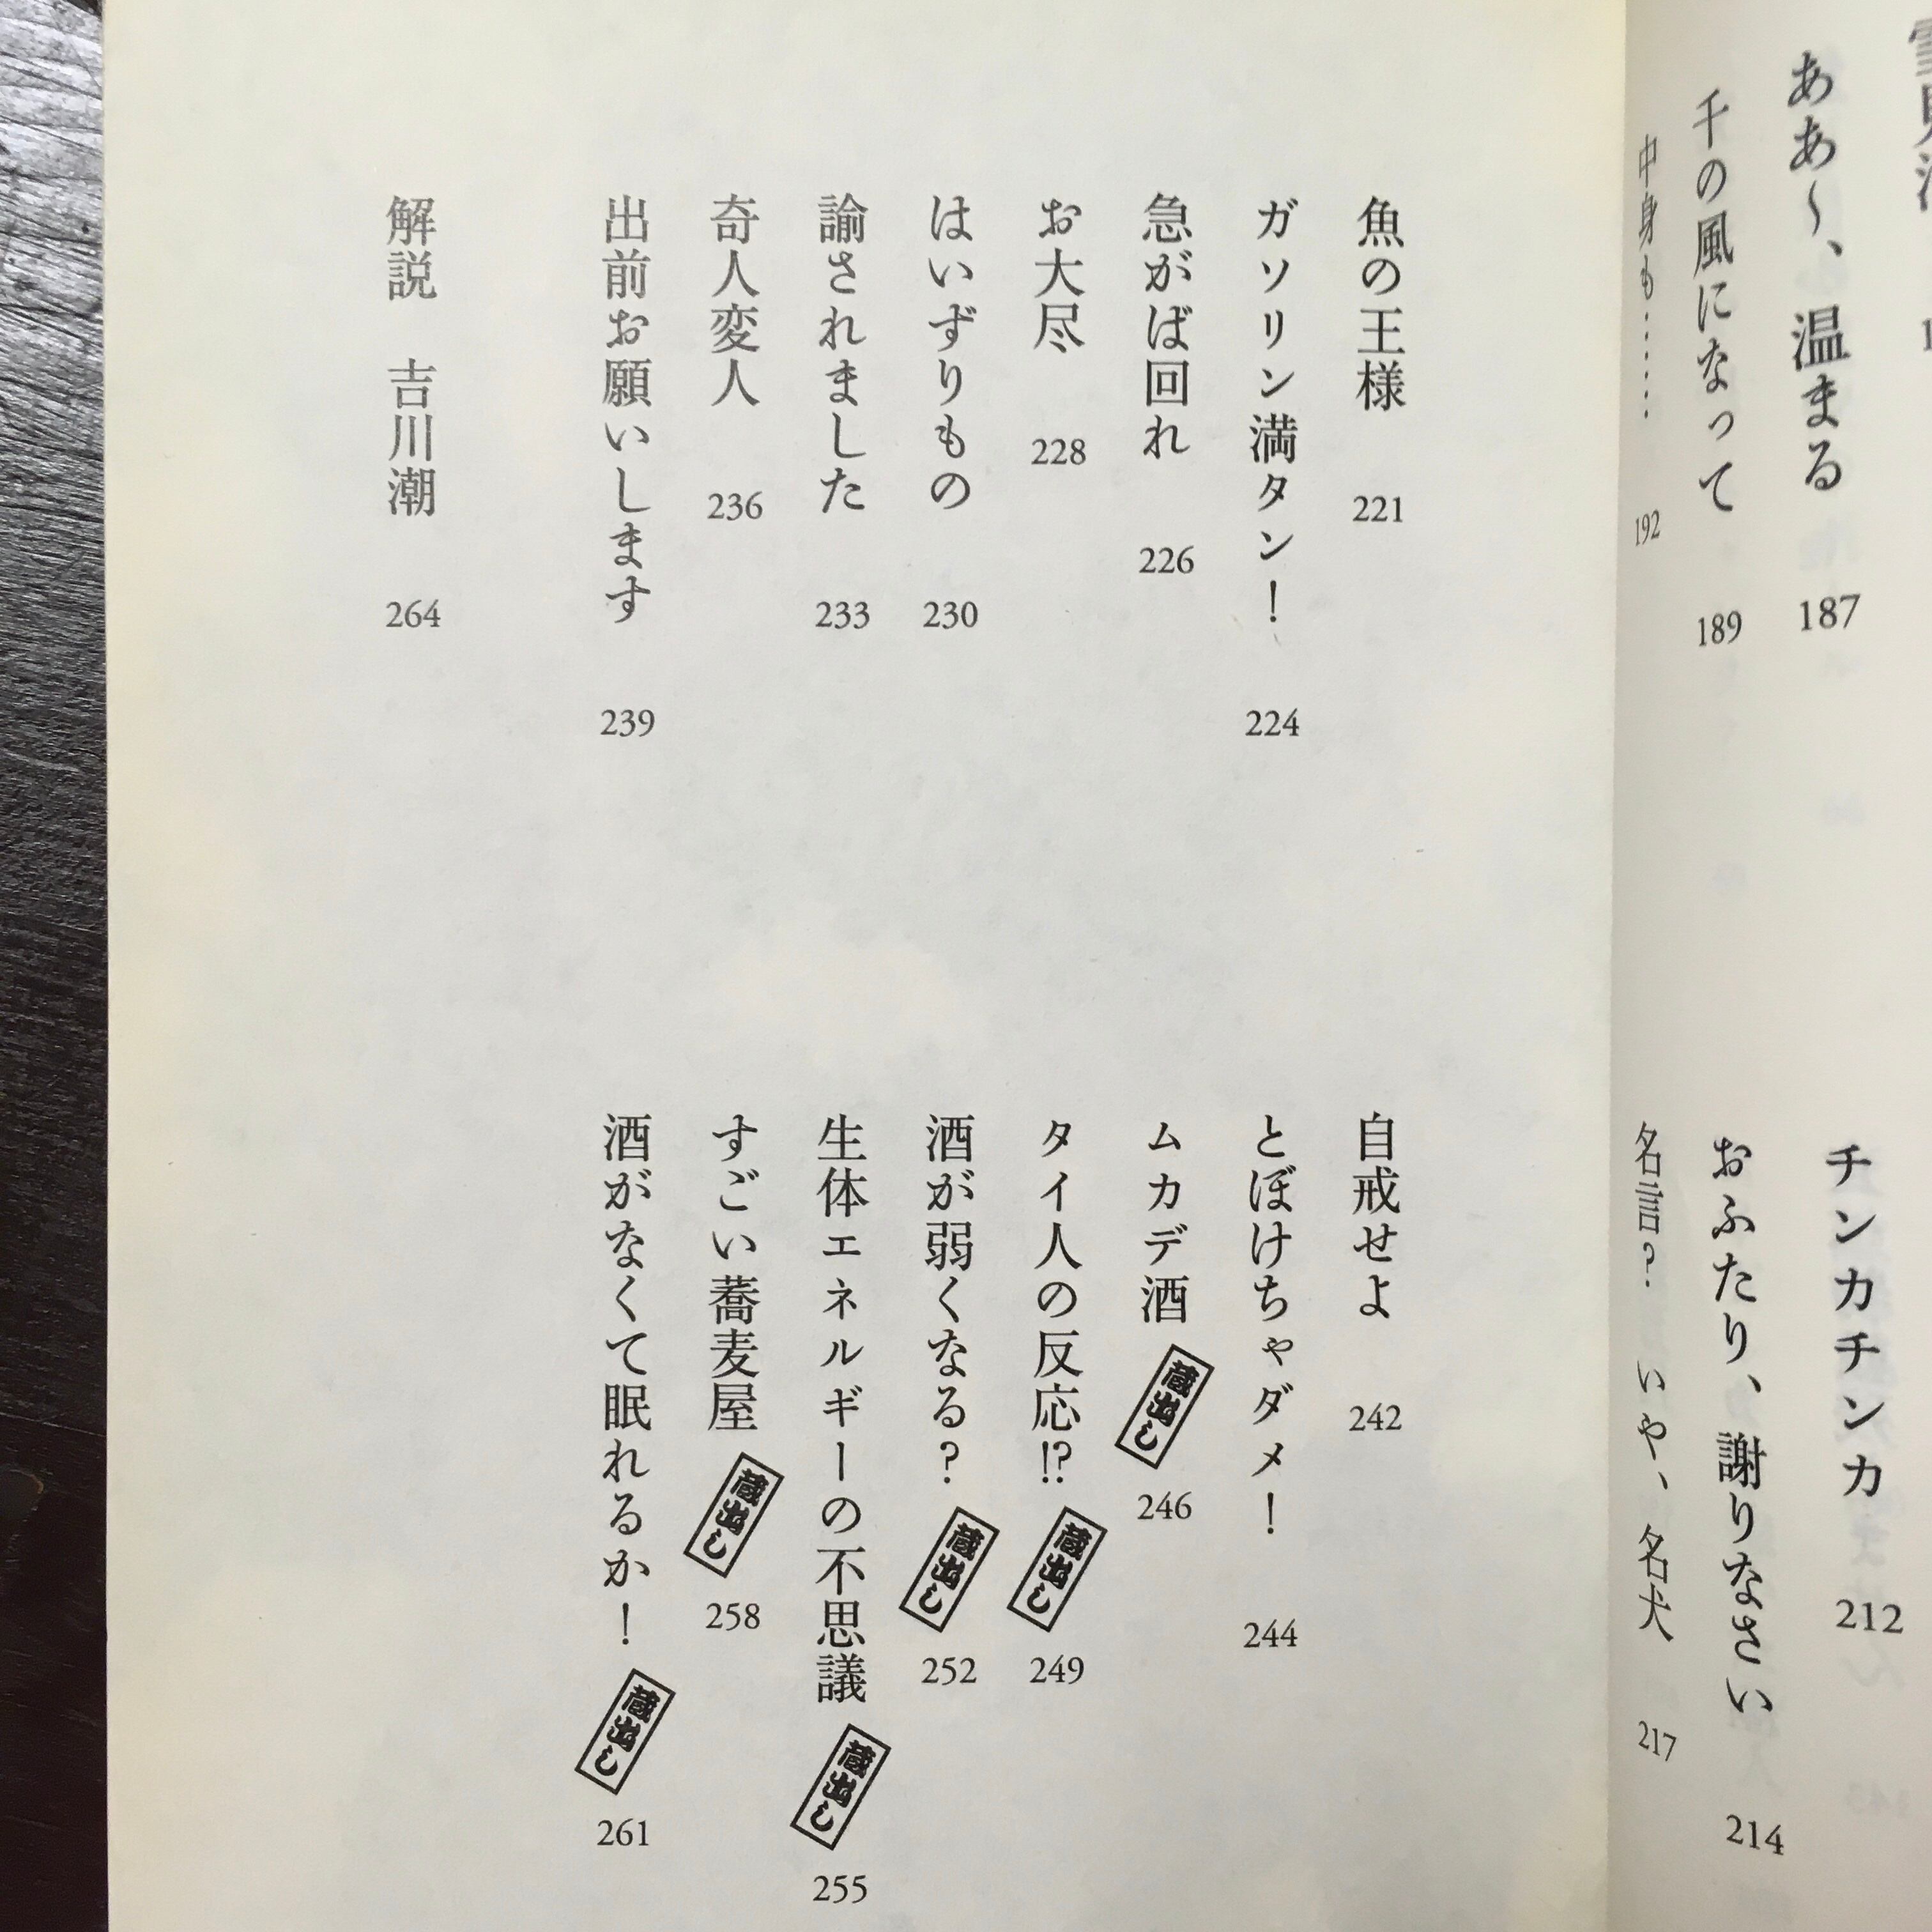 ああ〜、温まる 187
千の風になって 189
中身も…… 192
チンカチンカ 212
おふたり、謝りなさい 214
名言？ いや、名犬 217
魚の王様 221
ガソリン満タン！ 224
急がば回れ 226
お大尽 228
はいずりもの 230
諭されました 233
奇人変人 236
出前お願いします 239
自戒せよ 242
とぼけちゃダメ！ 244
ムカデ酒 蔵出し 246
タイ人の反応⁉ 蔵出し 249
酒が弱くなる？ 蔵出し 252
生体エネルギーの不思議 蔵出し 255
すごい蕎麦屋 蔵出し 258
酒がなくて眠れるか！ 蔵出し 261
解説 吉川潮 264